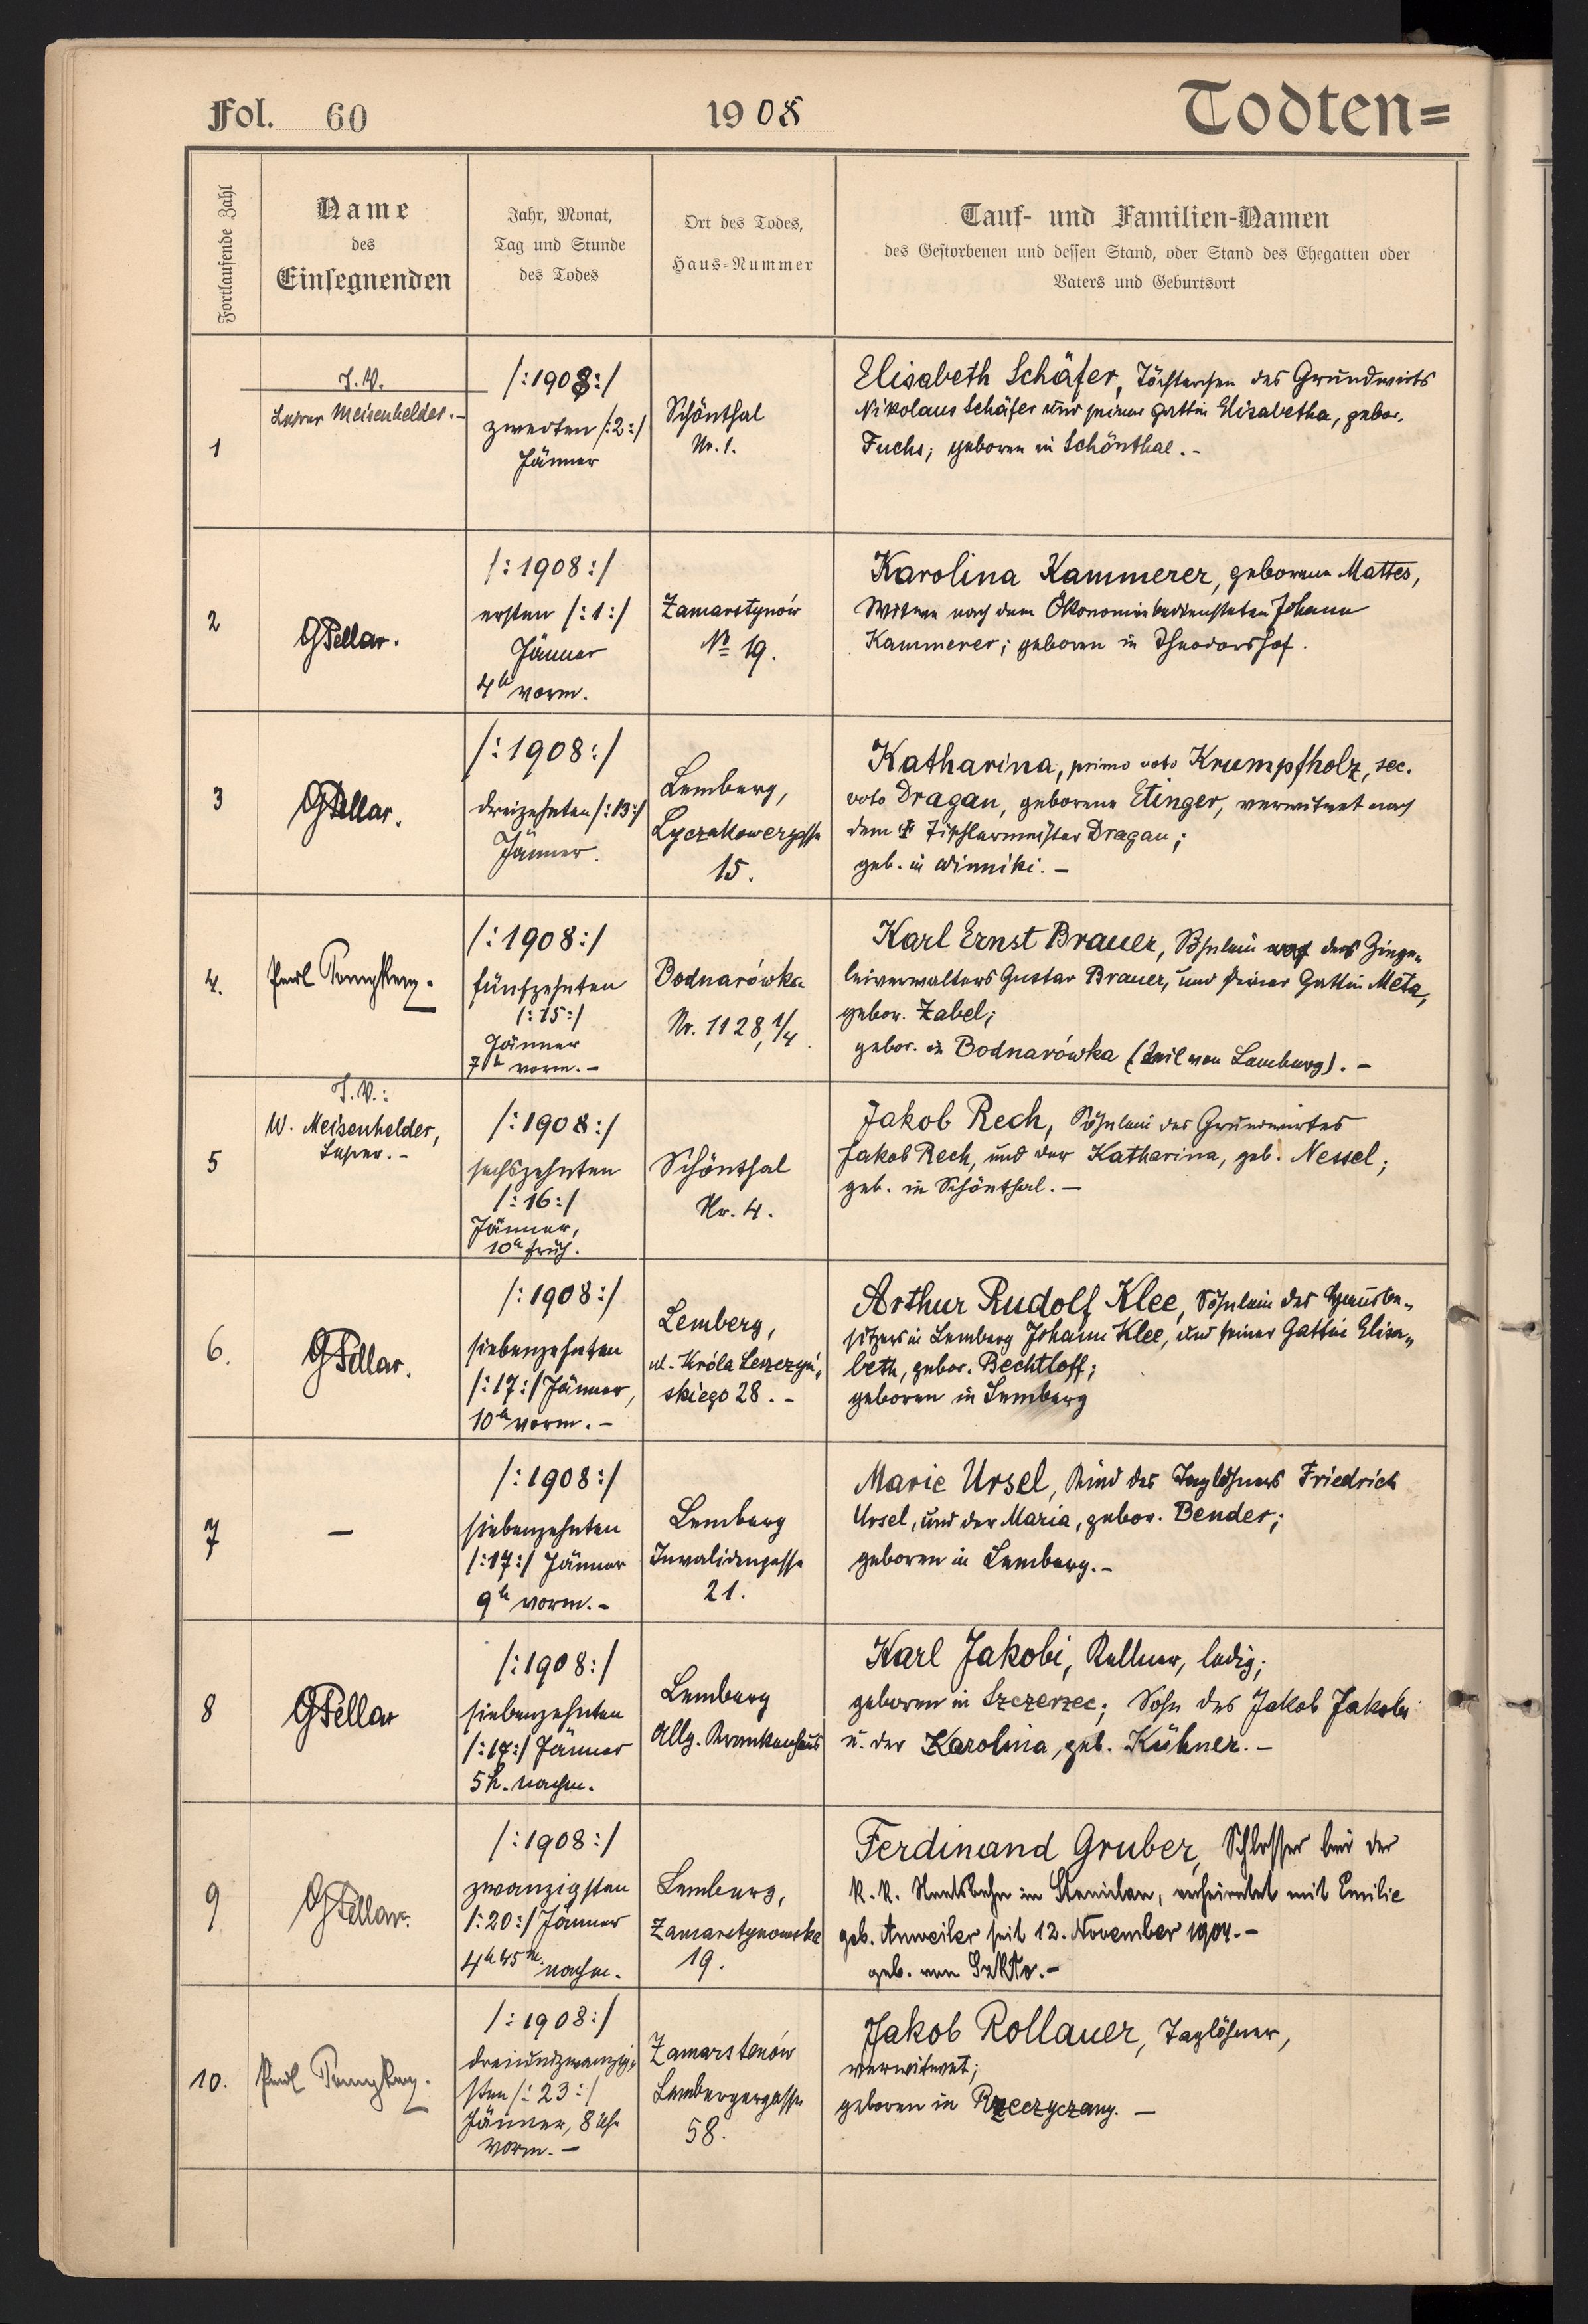 Fol. 60
1908
Todten=
Fortlaufende Zahl
Name
des
Einsegnenden
Jahr, Monat,
Tag und Stunde
des Todes
Ort des Todes,
Haus-Nummer
Tauf- und Familien-Namen
des Gestorbenen und dessen Stand, oder Stand des Ehegatten oder
Vaters und Geburtsort
1
I. V.
Lehrer Meisenhelder.-
/:1908:/
zweiten /:2:/
Jänner
Schönthal
Nr. 1.
Elisabeth Schäfer, Töchterchen des Grundwirts
Nikolaus Schäfer und seiner Gattin Elisabetha, gebor.
Fuchs; geboren in Schönthal.-
2
GSellar.
/:1908:/
ersten /:1:/
Jänner
4h vorm.
Zamarstynów
No 19.
Karolina Kammerer, geborene Mattes,
Witwe nach dem Ökonomiebediensteten Johann
Kammerer; geboren in Theodorshof.
3
GSellar.
/:1908:/
dreizehnten /:13:/
Jänner.
Lemberg,
Lyczakowergasse
15.
Katharina, primo voto Krumpfholz, sec.
voto Dragan, geborene Etinger, verwitwet nach
dem Tischlermeister Dragan;
geb. in Winniki.-
4.
Paul
/:1908:/
fünfzehnten
/:15:/
Jänner
7h vorm.-
Bodnarówka
Nr. 1128, 1/4.
Karl Ernst Brauer, Söhnlein des Ziege„
leiverwalters Gustav Brauer, und seiner Gattin Meta,
gebor. Zabel;
gebor. in Bodnarówka (Teil von Lemberg).-
5
I. V.:
W. Meisenhelder,
Lehrer.-
/:1908:/
sechszehnten
/:16:/
Jänner,
10h früh.
Schönthal
Nr. 4.
Jakob Rech, Söhnlein des Grundwirtes
Jakob Rech, und der Katharina, geb. Nessel;
geb. in Schönthal.-
6.
GSellar.
/:1908:/
siebenzehnten
/:17:/ Jänner,
10h vorm.-
Lemberg,
ul. Króla Leszczyń„
skiego 28.-
Arthur Rudolf Klee, Söhnlein des Hausbe„
sitzers in Lemberg Johann Klee, und seiner Gattin Elisa„
beth, gebor. Bechtloff;
geboren in Lemberg
7
-
/:1908:/
siebenzehnten
/:17:/ Jänner
9h vorm.-
Lemberg
Invalidengasse
21.
Marie Ursel, Kind des Taglöhners Friedrich
Ursel, und der Maria, gebor. Bender;
geboren in Lemberg.-
8
GSellar
/:1908:/
siebenzehnten
/:17:/ Jänner
5h. nachm.
Lemberg
Allg. Krankenhaus
Karl Jakobi, Kellner, ledig;
geboren in Szczerzec; Sohn des Jakob Jakobi
u. der Karolina, geb. Kühner.-
9
GSellar.
/:1908:/
zwanzigsten
/:20:/ Jänner
4h 45m. nachm.
Lemberg,
Zamarstynowska
19.
Ferdinand Gruber, Schlosser bei der
k. k. Staatsbahn in Stanislau, verheiratet mit Emilie
geb. Anweiler seit 12. November 1904.-
geb. von Szkło.-
10.
Paul
/:1908:/
dreiundzwanzig„
sten /:23:/
Jänner, 8 Uhr
vorm.-
Zamarstenów
Lembergergasse
58.
Jakob Rollauer, Taglöhner,
verwitwet;
geboren in Rzeczyczany.-